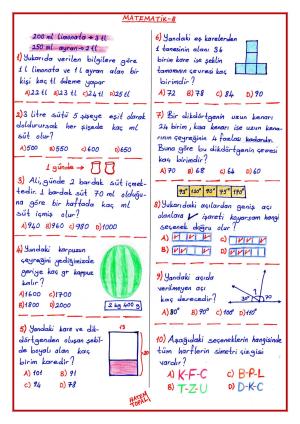 MATEMATİK-8
200 ml limonata → 3 tl
250 ml ayran → 2 tl
1) Yukarıda verilen bilgilere göre
1 l limonata ve 1 l ayran alan bir
kişi kaç tl ödeme yapar
A) 22 B) 23 C) 24 D) 25 tl
2) 3 litre sütü 5 şişeye eşit olarak
doldurursak her şişede kaç ml
süt olur?
A) 500 B) 550 C) 600 D) 650
1 günde →
3) Ali, günde 2 bardak süt içmek-
tedir. 1 bardak süt 70 ml olduğu-
na göre bir haftada kaç ml
süt içmiş olur?
A) 940 B) 960 C) 980 D) 1000
4) Yandaki karpuzun
çeyreğini yediğimizde
geriye kaç gr karpuz
kalır?
A) 1600 C) 1700
B) 1800 D) 2000
2 kg 400 g
5) Yandaki kare ve dik-
dörtgenden oluşan şekil-
de boyalı alan kaç
birim karedir?
A) 101 B) 91
C) 94 D) 78
13
20
HATEM
TOPAL
6) Yandaki eş karelerden
1 tanesinin alanı 36
birim kare ise şeklin
tamamının çevresi kaç
birimdir?
A) 72 B) 78 C) 84 D) 86
7) Bir dikdörtgenin uzun kenarı
24 birim, kısa kenarı ise uzun kena-
rının çeyreğinin 4 fazlası kadardır.
Buna göre bu dikdörtgenin çevresi
kaç birimdir?
A) 66 B) 67 C) 68 D) 70
8) Yukarıdaki açılardan geniş açı
olanlara ✓ işareti koyarsam hangi
seçenek doğru olur?
A) C)
B) D)
9) Yandaki açıda
verilmeyen açı
kaç derecedir?
70°
A) 80° B) 90° C) 100° D) 110°
10) Aşağıdaki seçeneklerin hangisinde
tüm harflerin simetri çizgisi
vardır?
A) K-F-C C) B-P-L
B) T-Z-U D) D-K-C